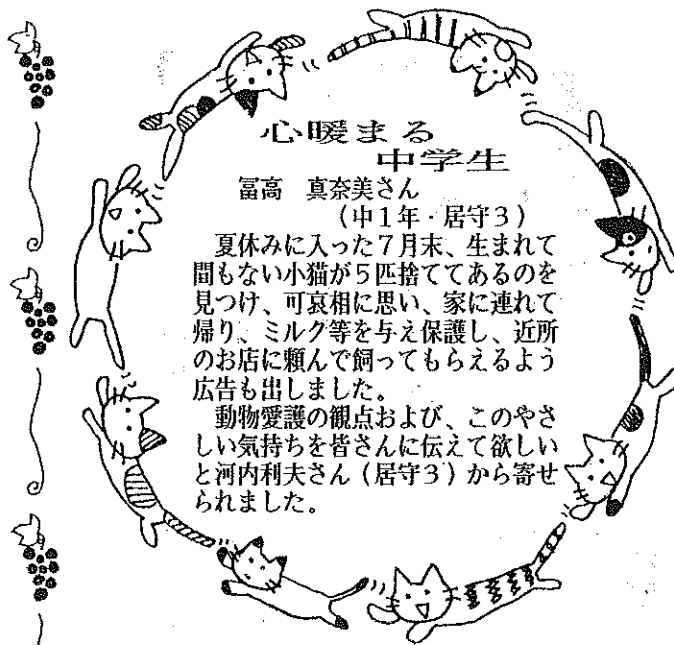 心暖まる
中学生
冨高 真奈美さん
(中1年・居守3)
夏休みに入った7月末、生まれて
間もない小猫が5匹捨ててあるのを
見つけ、可哀相に思い、家に連れて
帰り、ミルク等を与え保護し、近所
のお店に頼んで飼ってもらえるよう
広告も出しました。
動物愛護の観点および、このやさ
しい気持ちを皆さんに伝えて欲しい
と河内利夫さん(居守3)から寄せ
られました。